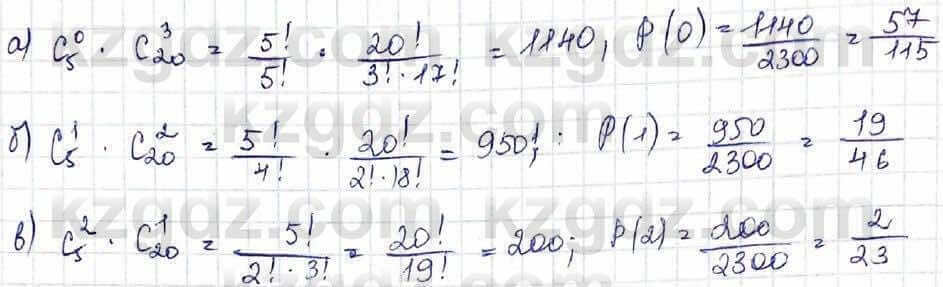 а) C₅⁰ · C₂₀³ = 5!/5! · 20!/(3!·17!) = 1140; P(0) = 1140/2300 = 57/115
б) C₅¹ · C₂₀² = 5!/4! · 20!/(2!·18!) = 950; P(1) = 950/2300 = 19/46
в) C₅² · C₂₀¹ = 5!/(2!·3!) = 20!/19! = 200; P(2) = 200/2300 = 2/23
kzgdz.com